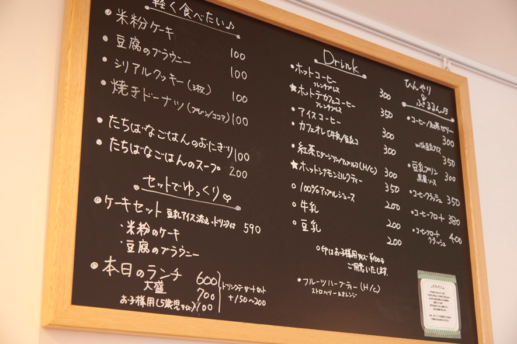 軽く食べたい♪
・米粉ケーキ 100
・豆腐のブラウニー 100
・シリアルクッキー(3枚) 100
・焼きドーナツ(プレーン/ココア) 100
・たちばなごはんのおにぎり 100
・たちばなごはんのスープ 200
セットでゆっくり♡
・ケーキセット 豆乳アイス添え・ドリンク付 590
・米粉のケーキ
・豆腐のブラウニー
・本日のランチ 600
大盛 700
お子様用(5歳児まで) 100
ドリンク・デザートセット
+150~200
Drink
・ホットコーヒー 300
フレンチプレス
★ホットデカフェコーヒー 350
フレンチプレス
・アイスコーヒー 300
・カフェオレ(牛乳/豆乳) 300
・紅茶 (H/C) 300
★ホットレモンミルクティー 350
○100%アップルジュース 200
○牛乳 200
○豆乳 200
○印はお子様用サイズ ¥100で
ご用意いたします。
・フルーツハーブティー(H/C)
ストロベリー&オレンジ
ひんやり
&
ぷるるん
・コーヒー/紅茶ゼリー 300
with豆乳アイス 350
・豆乳プリン 300
黒蜜ソース
・コーヒークラッシュ 350
・コーヒーフロート 380
・コーヒーフロート
クラッシュ 400